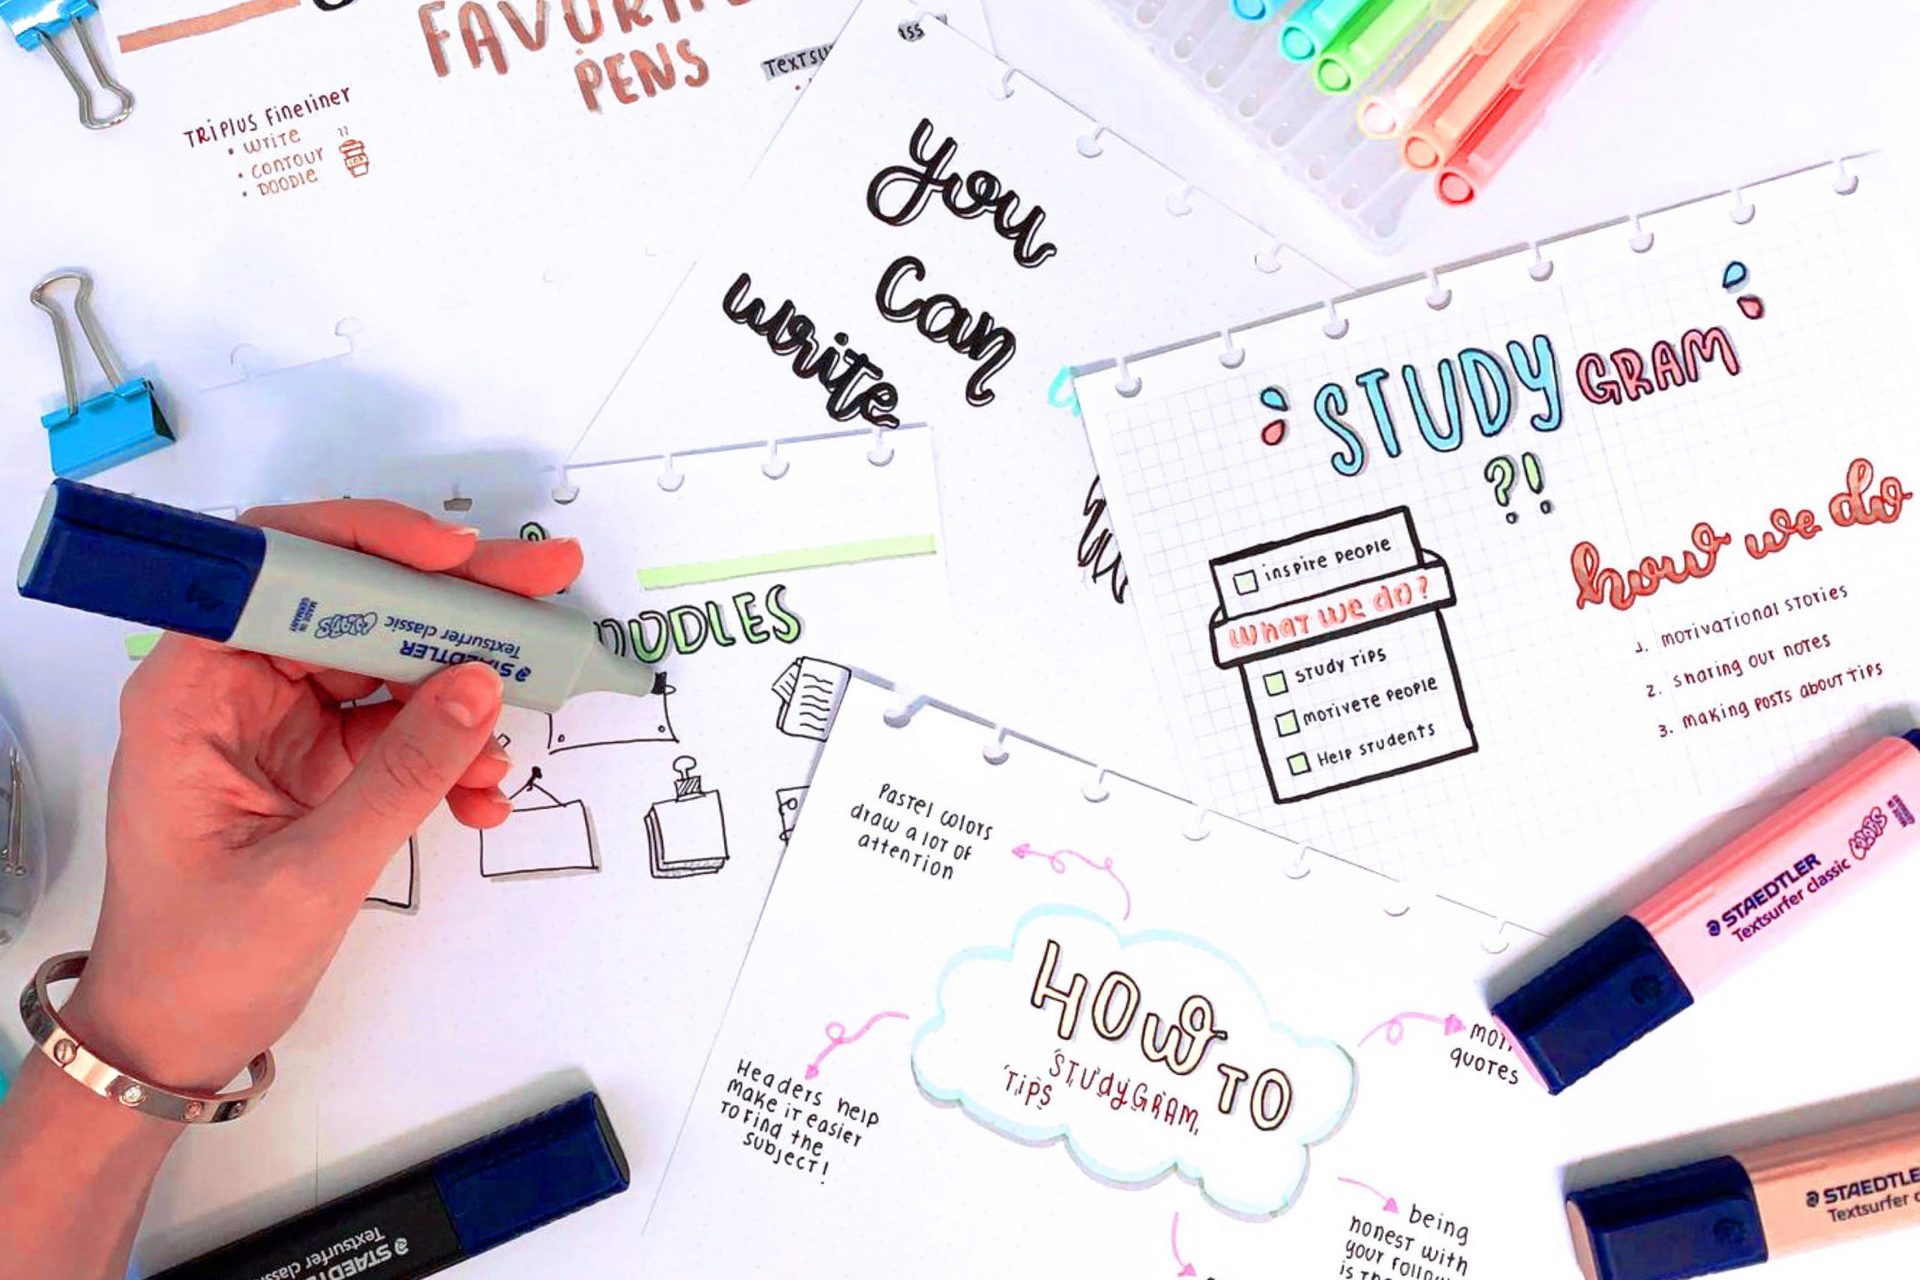 FAVORITE
PENS
TRIPLUS FINELINER
• WRITE
• CONTOUR
• DOODLE
you
can
write
STUDY GRAM
?!
inspire people
what we do?
STUDY TIPS
motivete people
Help students
how we do
1. motivational stories
2. sharing our notes
3. making posts about tips
DOODLES
STAEDTLER
Textsurfer classic
MADE IN
GERMANY
Pastel colors
draw a lot of
attention
HOW TO
STUDYGRAM
TIPS
Headers help
make it easier
to find the
subject!
quotes
being
honest with
your
STAEDTLER
Textsurfer classic
STAEDTLER
Textsurfer
STAEDTLER
Textsurfer